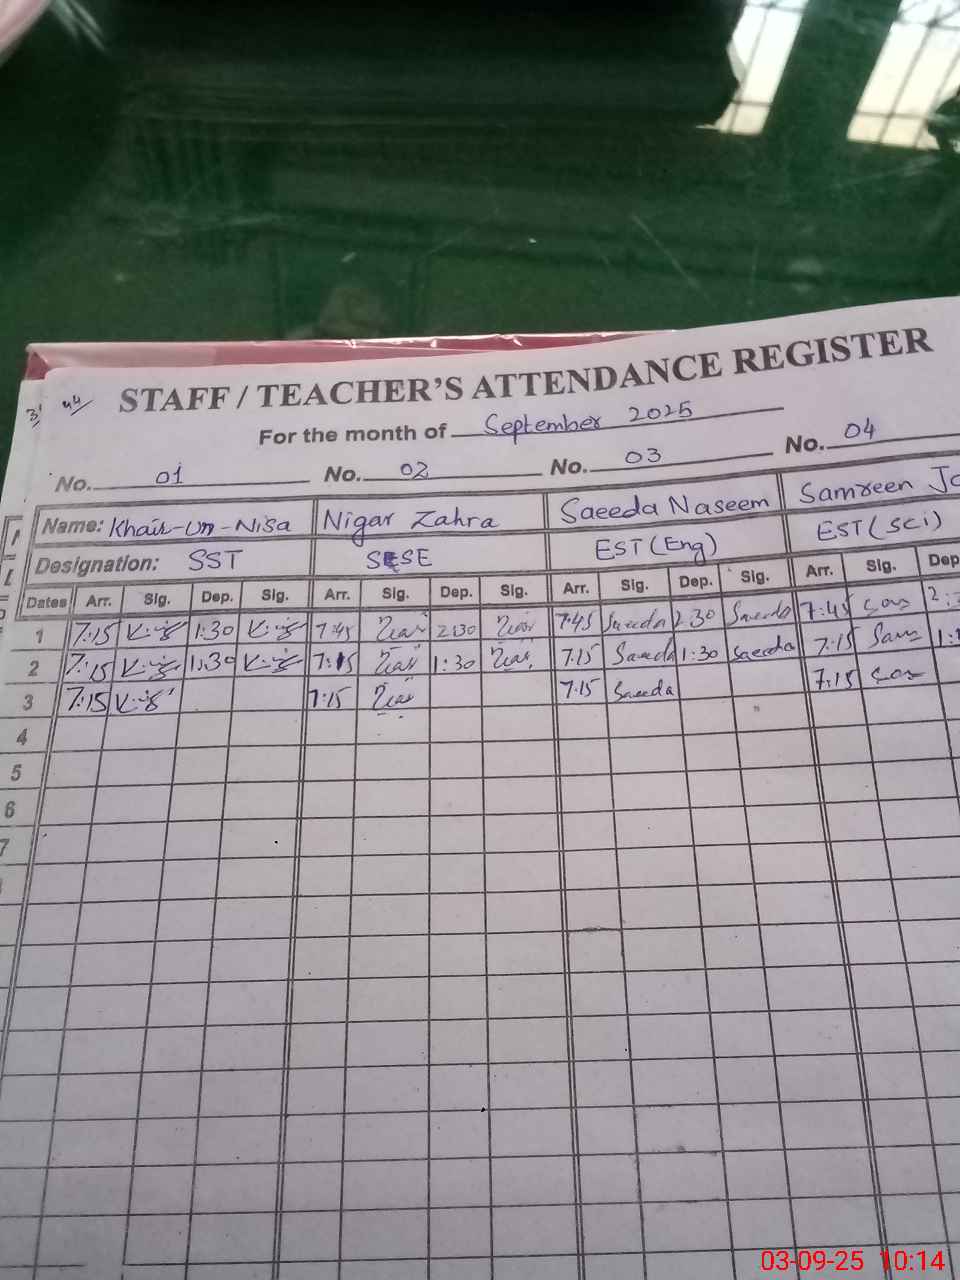 STAFF / TEACHER'S ATTENDANCE REGISTER
For the month of September 2025
No. 01 No. 02 No. 03 No. 04
Name: Khair-Un-Nisa Nigar Zahra Saeeda Naseem Samreen
Designation: SST SESE EST (Eng) EST (Sci)
Dates Arr. Sig. Dep. Sig. Arr. Sig. Dep. Sig. Arr. Sig. Dep. Sig. Arr. Sig. Dep.
1 7:15 1:30 7:45 2:30 7:45 Saeeda 2:30 Saeeda 7:45
2 7:15 1:30 7:15 1:30 7:15 Saeeda 1:30 Saeeda 7:15
3 7:15 7:15 7:15 Saeeda 7:15
4
5
6
7
03-09-25 10:14